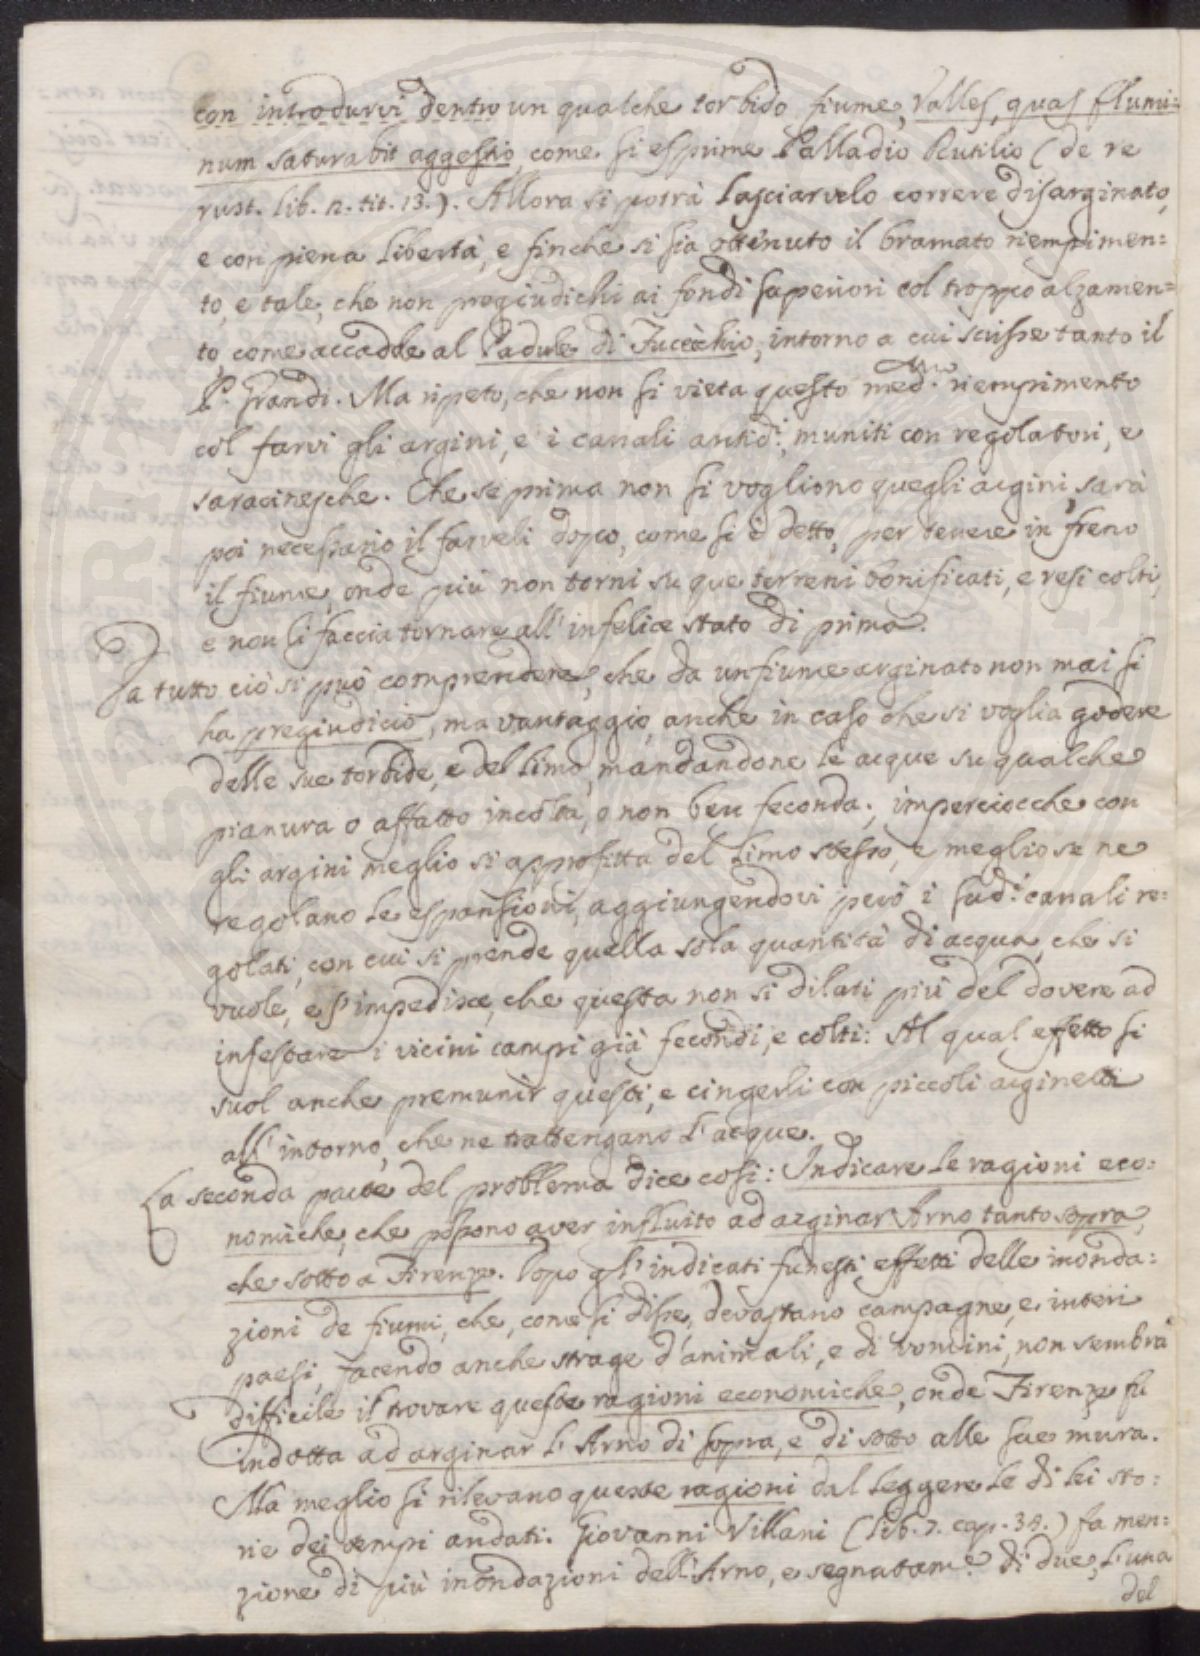 con introdurvi dentro un qualche torbido fiume, Valles, quas flumi=
num saturabit aggestio come si esprime Palladio Rutilio (de re
rust. lib. 12. tit. 13.). Allora si potrà lasciarvelo correre disarginato,
e con piena libertà, e finche si sia ottenuto il bramato riempimen=
to, e tale, che non pregiudichi ai fondi superiori col troppo alzamen=
to, come accadde al Padule di Fucecchio, intorno a cui scrisse tanto il
P. Grandi. Ma ripeto, che non si vieta questo med.mo riempimento
col farvi gli argini, e i canali antid.i, muniti con regolatori, e
saracinesche. Che se prima non si vogliono quegli argini, sarà
poi necessario il farveli dopo, come si è detto, per tenere in freno
il fiume, onde più non torni su que terreni bonificati, e resi colti,
e non li faccia tornare all'infelice stato di prima.
Da tutto ciò si può comprendere, che da un fiume arginato non mai si
ha pregiudicio, ma vantaggio, anche in caso che si voglia godere
delle sue torbide, e del limo, mandandone le acque su qualche
pianura o affatto incolta, o non ben feconda; imperciocche con
gli argini meglio si approfitta del limo stesso, e meglio se ne
regolano le espansioni, aggiungendovi però i sud.i canali re=
golati, con cui si prende quella sola quantità di acqua, che si
vuole, e s'impedisce, che questa non si dilati più del dovere ad
infestare i vicini campi già fecondi, e colti: Al qual effetto si
suol anche premunir questi, e cingerli con piccoli arginelli
all'intorno, che ne trattengano l'acque.
La seconda parte del problema dice così: Indicare le ragioni eco=
nomiche, che possono aver influito ad arginar Arno tanto sopra,
che sotto a Firenze. Dopo gl'indicati funesti effetti delle inonda=
zioni de fiumi, che, come si disse, devastano campagne, e interi
paesi, facendo anche strage d'animali, e di uomini, non sembra
difficile il trovare queste ragioni economiche, onde Firenze fu
indotta ad arginar l'Arno di sopra, e di sotto alle sue mura.
Ma meglio si rilevano queste ragioni dal leggere le di lei sto=
rie dei tempi andati. Giovanni Villani (lib. 7. cap. 34.) fa men=
zione di più inondazioni dell'Arno, e segnatam.e di due, l'una
del